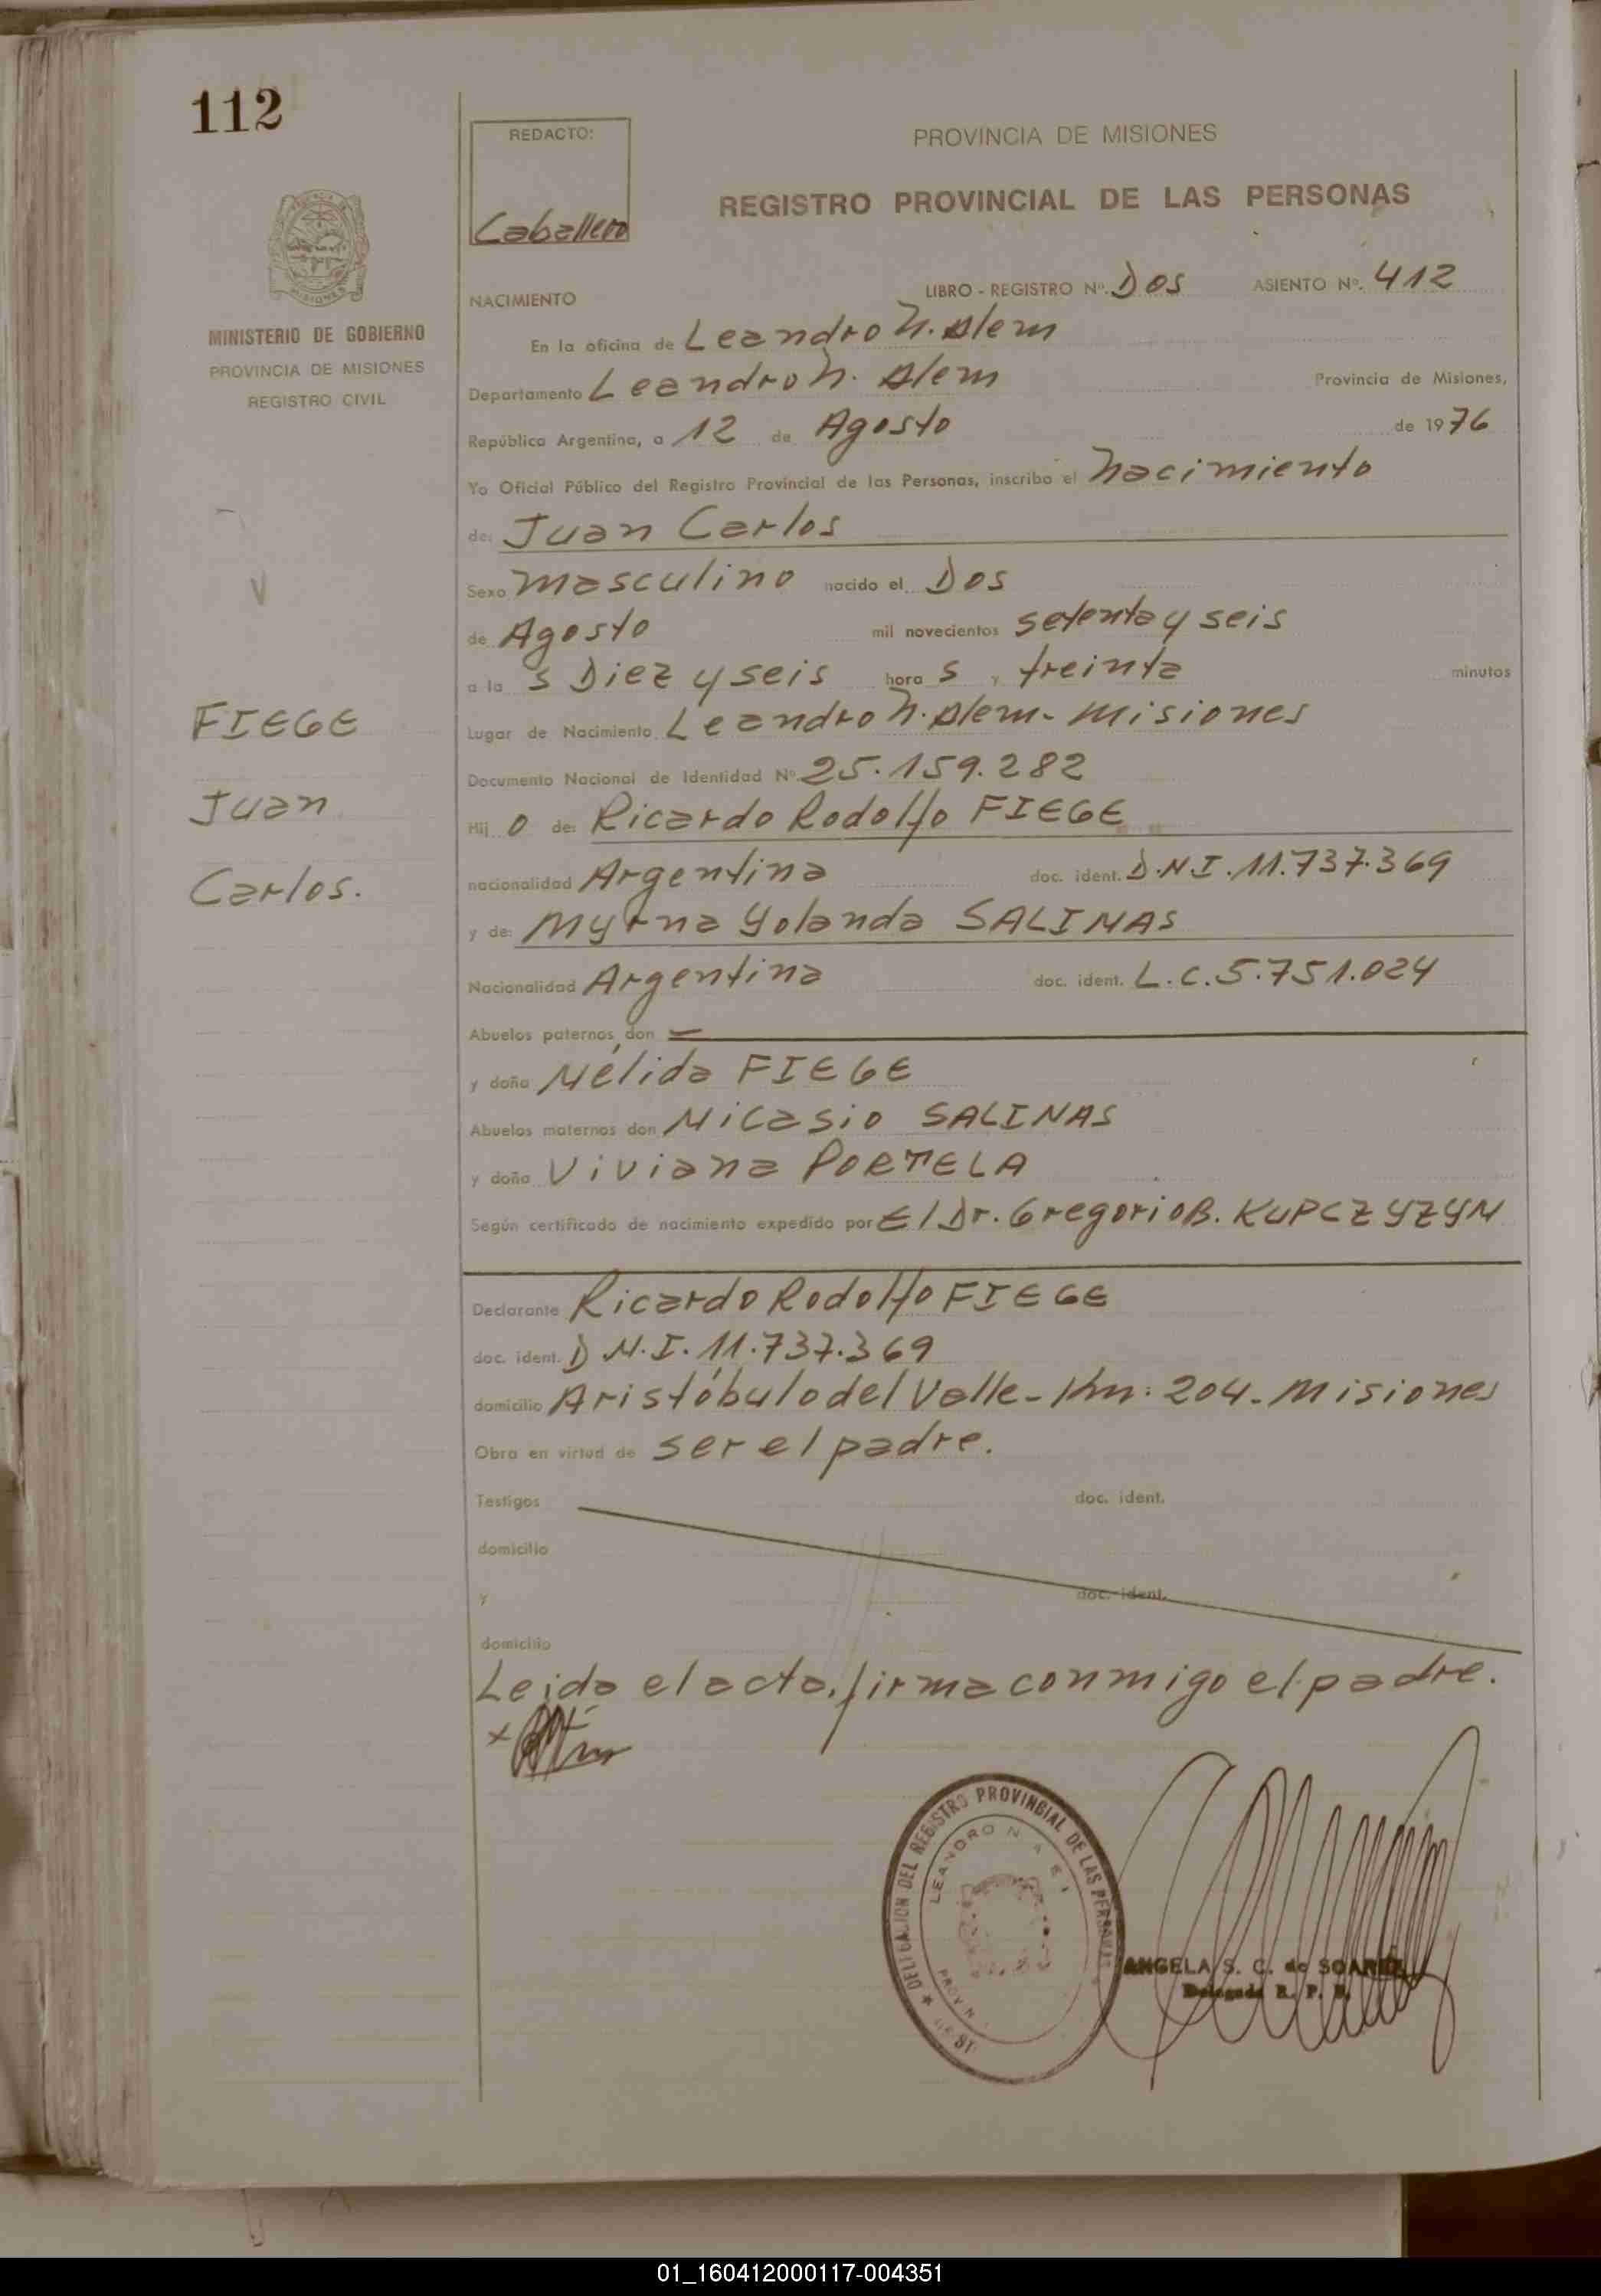 112
REDACTO:
Caballero
PROVINCIA DE MISIONES
REGISTRO PROVINCIAL DE LAS PERSONAS
MINISTERIO DE GOBIERNO
PROVINCIA DE MISIONES
REGISTRO CIVIL
NACIMIENTO
LIBRO - REGISTRO Nº. Dos ASIENTO Nº. 412
En la oficina de Leandro N. Alem
Departamento Leandro N. Alem Provincia de Misiones,
República Argentina, a 12 de Agosto de 1976
Yo Oficial Público del Registro Provincial de las Personas, inscribo el Nacimiento
de: Juan Carlos
Sexo masculino nacido el Dos
de Agosto mil novecientos setenta y seis
a la s Diez y seis hora s y treinta minutos
FIEGE
Juan
Carlos.
Lugar de Nacimiento Leandro N. Alem - Misiones
Documento Nacional de Identidad Nº 25.159.282
Hij o de: Ricardo Rodolfo FIEGE
nacionalidad Argentina doc. ident. D.N.I. 11.737.369
y de: Myrna Yolanda SALINAS
Nacionalidad Argentina doc. ident. L.C. 5.751.024
Abuelos paternos, don —
y doña Nélida FIEGE
Abuelos maternos don Nicasio SALINAS
y doña Viviana PORTELA
Según certificado de nacimiento expedido por El Dr. Gregorio B. KUPCZYZYN
Declarante Ricardo Rodolfo FIEGE
doc. ident. D N.I. 11.737.369
domicilio Aristóbulo del Valle - Km: 204 - Misiones
Obra en virtud de ser el padre.
Testigos doc. ident.
domicilio
y doc. ident.
domicilio
Leida el acta, firma conmigo el padre.
DELEGACION DEL REGISTRO PROVINCIAL DE LAS PERSONAS
LEANDRO N
ANGELA S. C. de SOAREZ
Delegada R. P. P.
01_160412000117-004351